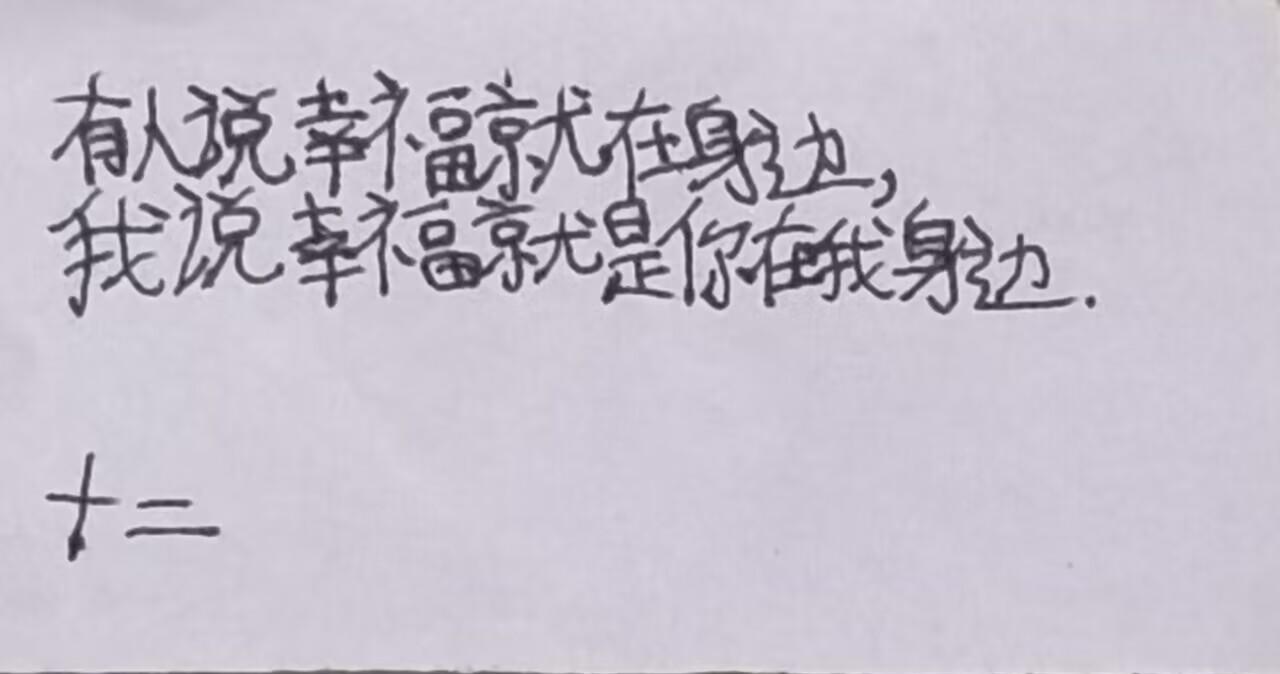 有人说幸福就在身边,
我说幸福就是你在我身边.
十二